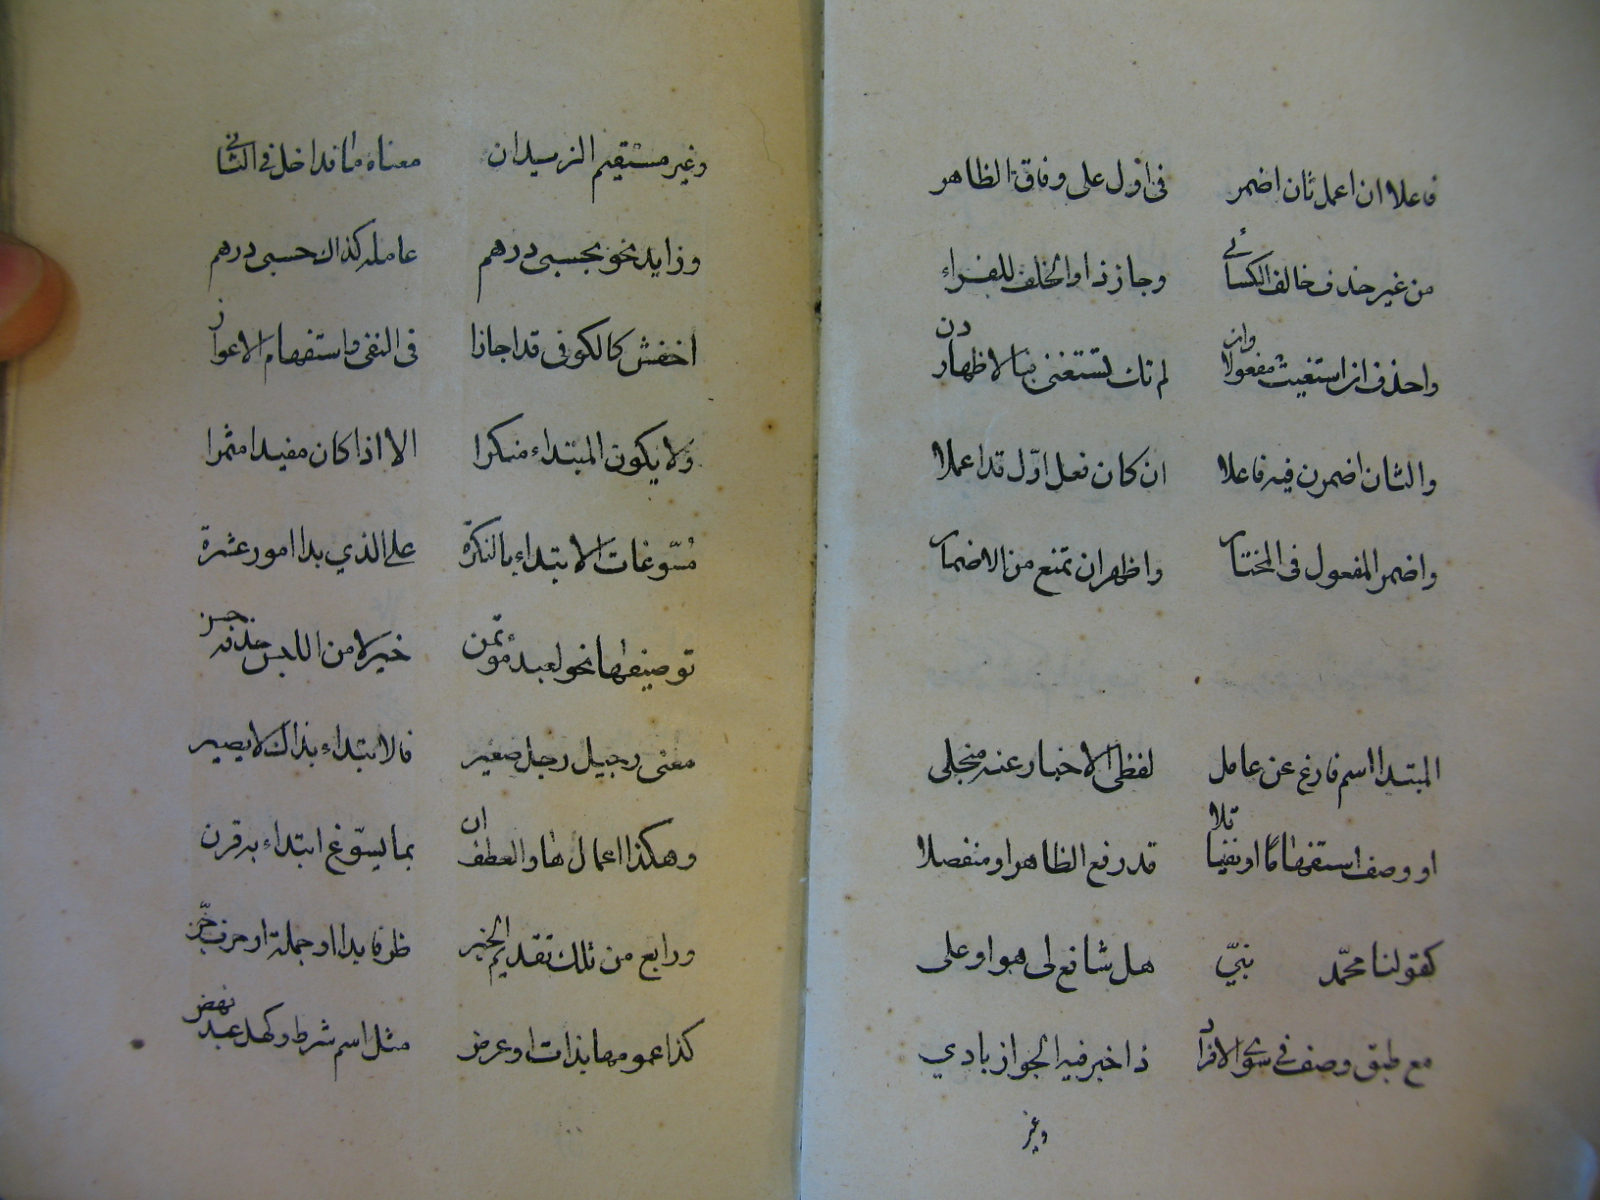 فاعلا ان اعمل ثان اضمر في اول على وفاق الظاهر
من غير حذف خالف الكسائي وجاز ذا والخلف للفراء
واحذف ان استغيث مفعولا وان لم تك تستغني بنا لاظهاردن
والثان اضمرن فيه فاعلا ان كان فعل اوّل قد اعملا
واضمر المفعول في المختار واظهر ان تمنع من الاضمار
المبتدا اسم فارغ عن عامل لفظي الاخبار عنه منجلي
او وصف استفهاما او نفيا تلا قد رفع الظاهر او منفصلا
كقولنا محمّد نبيّ هل شافع لي هو او على
مع طبق وصف في سوى الافراد ذا خبر فيه الجواز بادي
وغير
وغير مستقيم الزيدان معناه ما فداخل في الثاني
وزايد نحو بحسبي درهم عامله كذاك حسبي درهم
اخفش كالكوفي قد اجازا في النفي واستفهام الاعواز
ولا يكون المبتداء منكرا الا اذا كان مفيدا مثمرا
مُسّوغات الابتداء بالنكرة على الذي بدا امور عشرة
توصيفها نحو لعبد مؤتمن خير لا من اللجن حذفه
معنى رجيل رجل صغير فالابتداء بذاك لا يصير
وهكذا اعمالها والعطف ان بما يسّوغ ابتداء به قرن
ورابع من تلك تقديم الخبر ظرفا بدا او جملة او حرف جّر
كذا عمومها بذات او عرض مثل اسم شرط وكهل عبد نهض